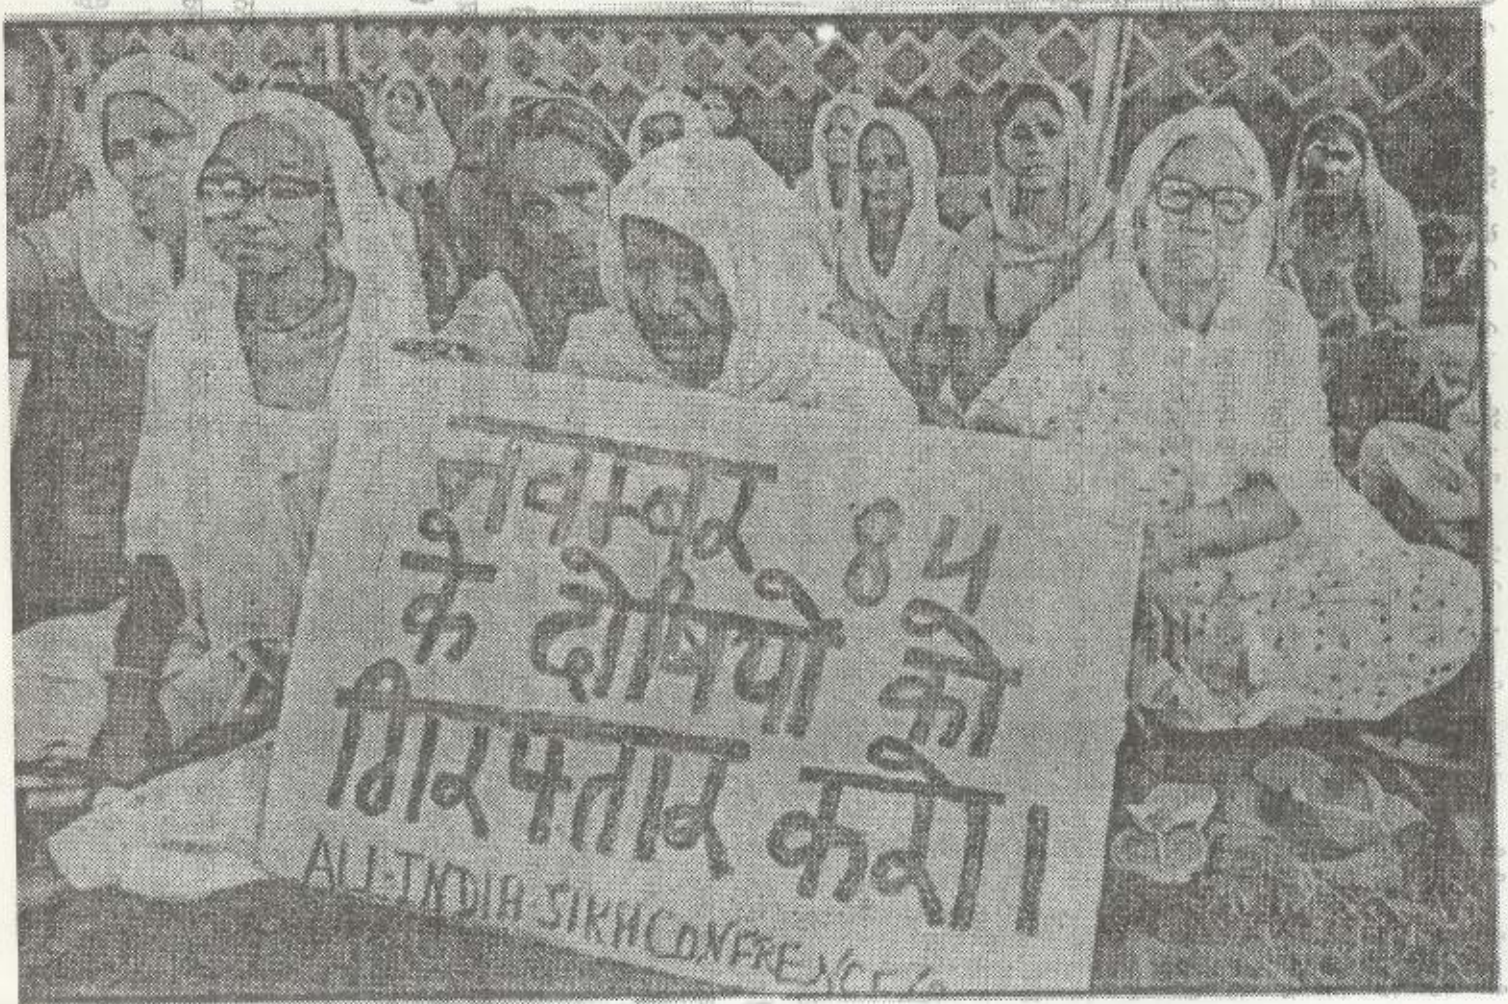 नवम्बर 84
के दोषियो को
गिरफ्तार करो।
ALL-INDIA-SIKH CONFRENCE